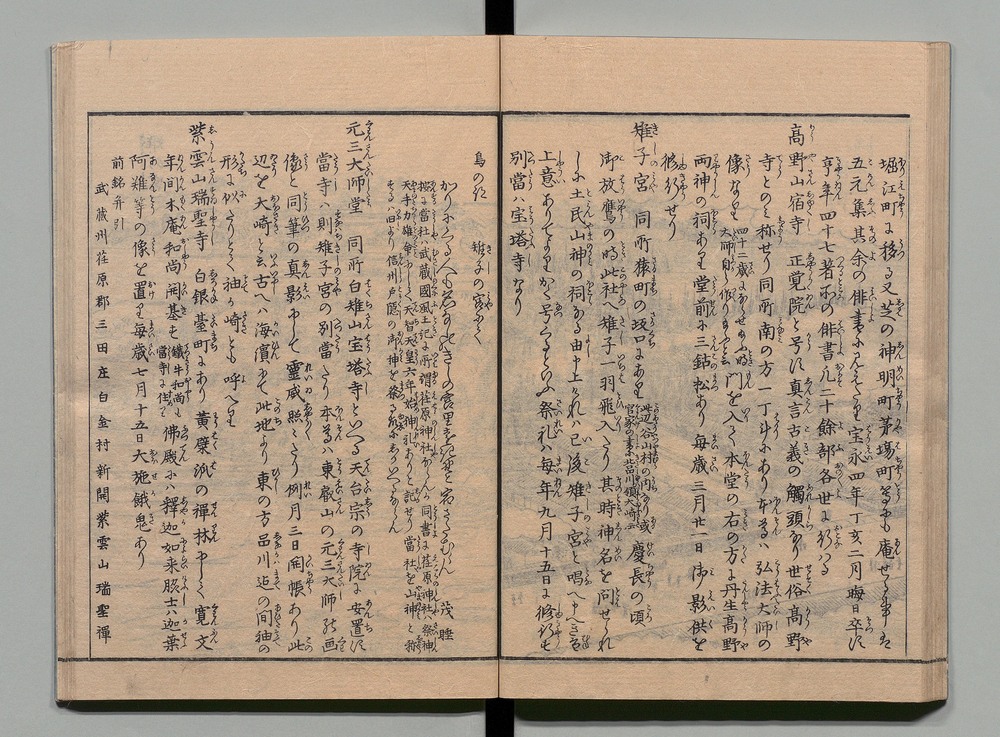 堀江町に移る又芝の神明町茅場町等にも庵せる事は
五元集其余の俳書にみえたり宝永四年丁亥二月晦日卒す
享年四十七著す所の俳書凡二十餘部各世に行はる
高野山宿寺 正覚院と号す真言古義の觸頭なり世俗高野
寺とのミ称せり同所南の方一丁斗にあり本尊ハ弘法大師の
像なり 四十二歳にならせ給ふ時 大師自ら作り給ふと云 門を入て本堂の右の方に丹生高野
両神の祠あり堂前に三鈷松あり毎歳三月廿一日御影供を
修行せり
雉子宮 同所猿町の坂口にあり 此辺谷山村の内なり或 慶長の頃
御放鷹の時此社へ雉子一羽飛入たり其時神名を問せられ
しに土民山神の祠なる由申上けれハ已後雉子宮と唱へ申へき旨
上意ありてよりかく号くるといふ祭礼ハ毎年九月十五日に修行す
別當ハ宝塔寺なり
鳥の迹 雉子の宮にて
茂睡
按に當社ハ武蔵國風土記に所謂荏原神社ならん 同書に荏原神社ハ祭神
天手力雄命にして天智天皇六年始神礼ありと記せり 當社を山神と称
するハ旧より信州戸隠の御神を祭る故にしかいへるならん
元三大師堂 同所白雉山宝塔寺といへる天台宗の寺院に安置す
當寺ハ則雉子宮の別當たり本尊ハ東叡山の元三大師の画
像と同筆の真影にして霊威照々たり例月三日開帳あり此
辺を大崎と云古へハ海濱にて此地より東の方品川迄の間袖の
形に似たりとて袖か崎とも呼へり
紫雲山瑞聖寺 白銀臺町にあり黄檗派の禅林にして寛文
年間木庵和尚開基す 鐵牛和尚も 當寺に住す 佛殿にハ釋迦如来脇士ハ迦葉
阿難等の像を置り毎歳七月十五日大施餓鬼あり
前銘并引
武蔵州荏原郡三田庄白金村新開紫雲山瑞聖禪